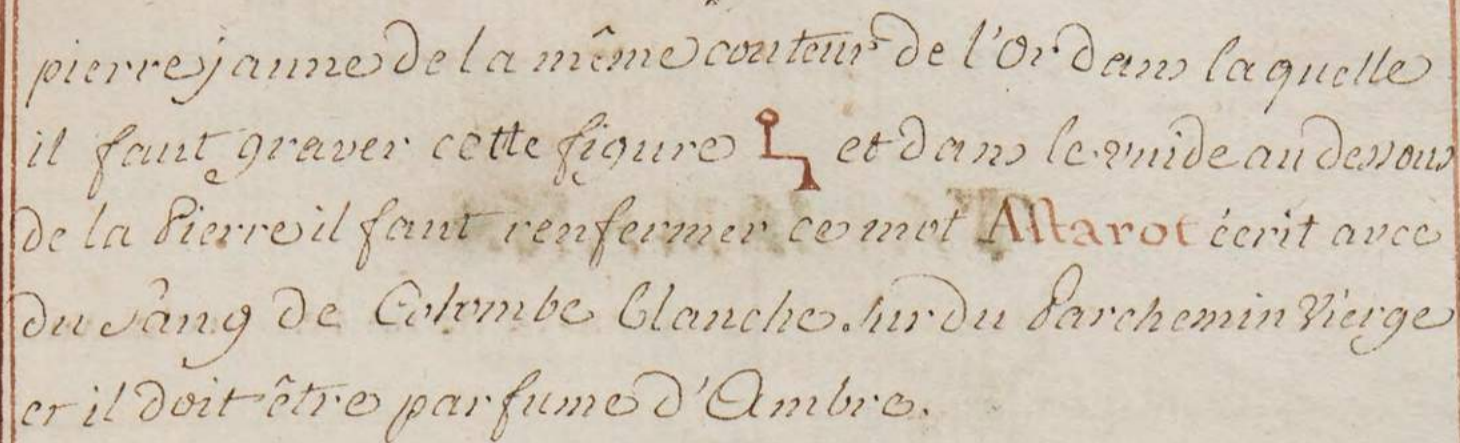 pierre jaune de la même couleur de l'Or dans laquelle
il faut graver cette figure et dans le vuide au dessous
de la Pierre il faut renfermer ce mot Astarot écrit avec
du sâng de Colombe blanche sur du Parchemin Vierge
et il doit être parfumé d'Ambre.